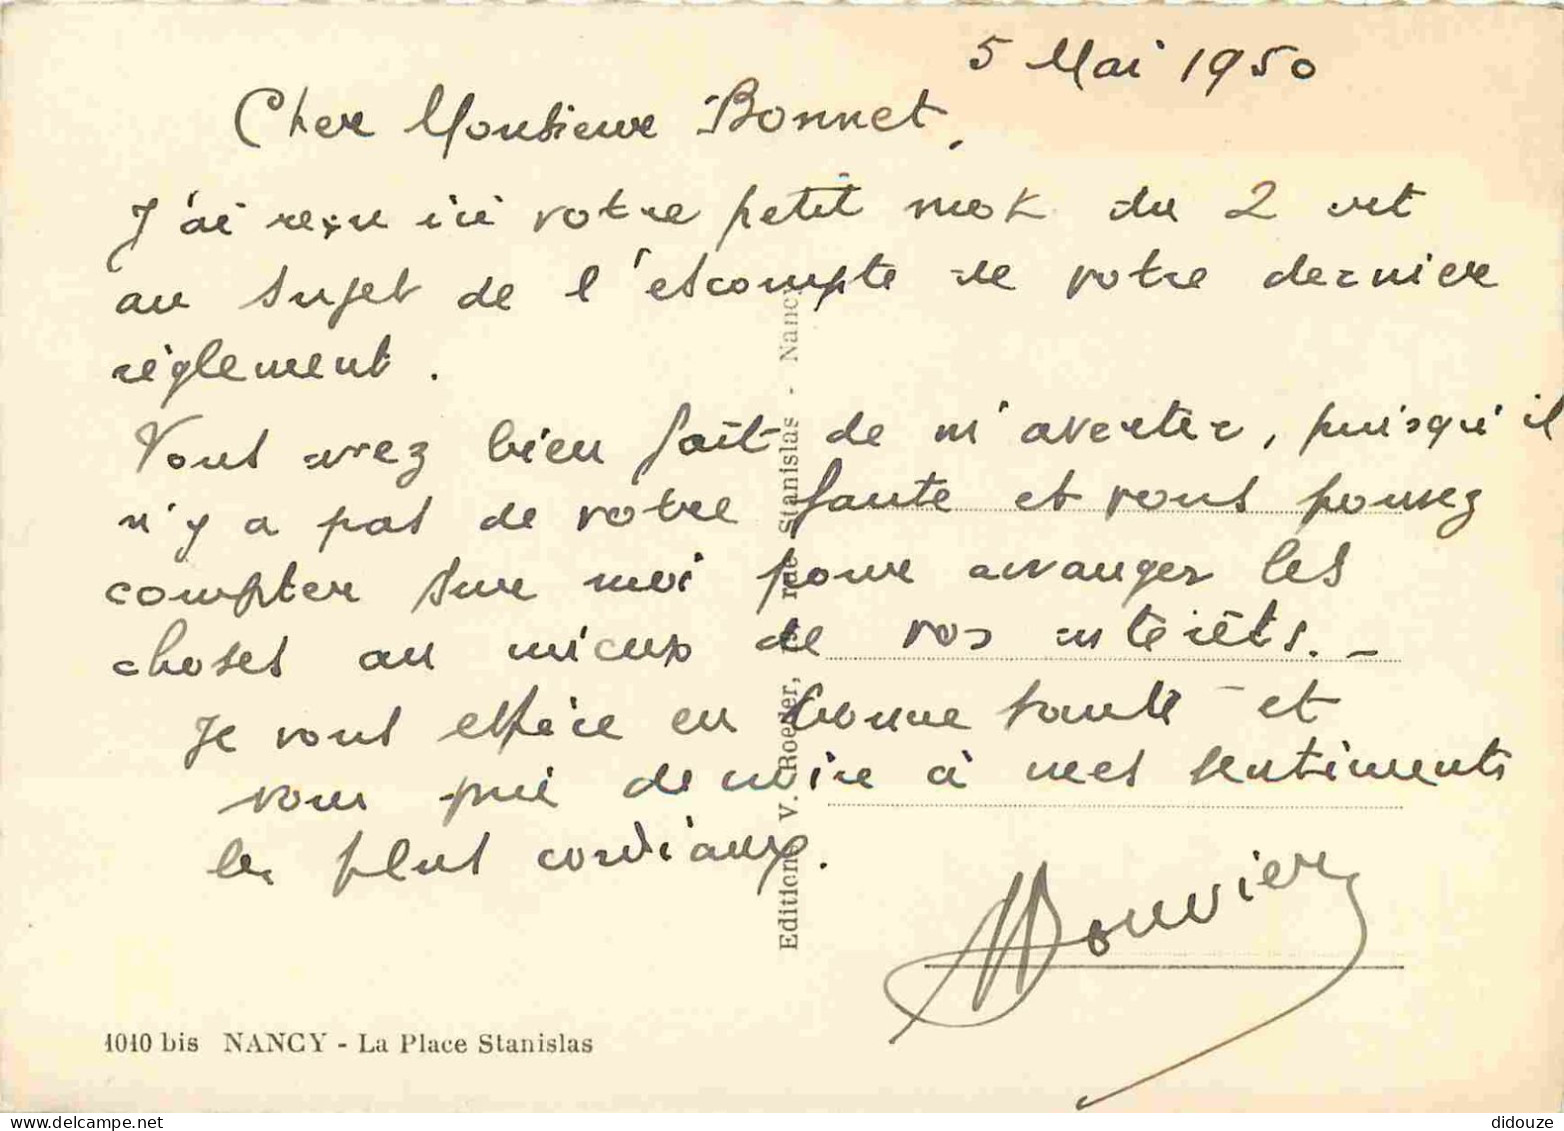 5 Mai 1950
Cher Monsieur Bonnet,
J'ai reçu ici votre petit mot du 2 crt
au sujet de l'escompte de votre dernier
règlement.
Vous avez bien fait de m'avertir, puisqu'il
n'y a pas de votre faute et vous pouvez
compter sur moi pour arranger les
choses au mieux de vos intérêts. -
Je vous espère en bonne santé et
vous prie de croire à mes sentiments
les plus cordiaux.
Bouvier
Edition V. Roeder, rue Stanislas - Nancy
1010 bis NANCY - La Place Stanislas
didouze